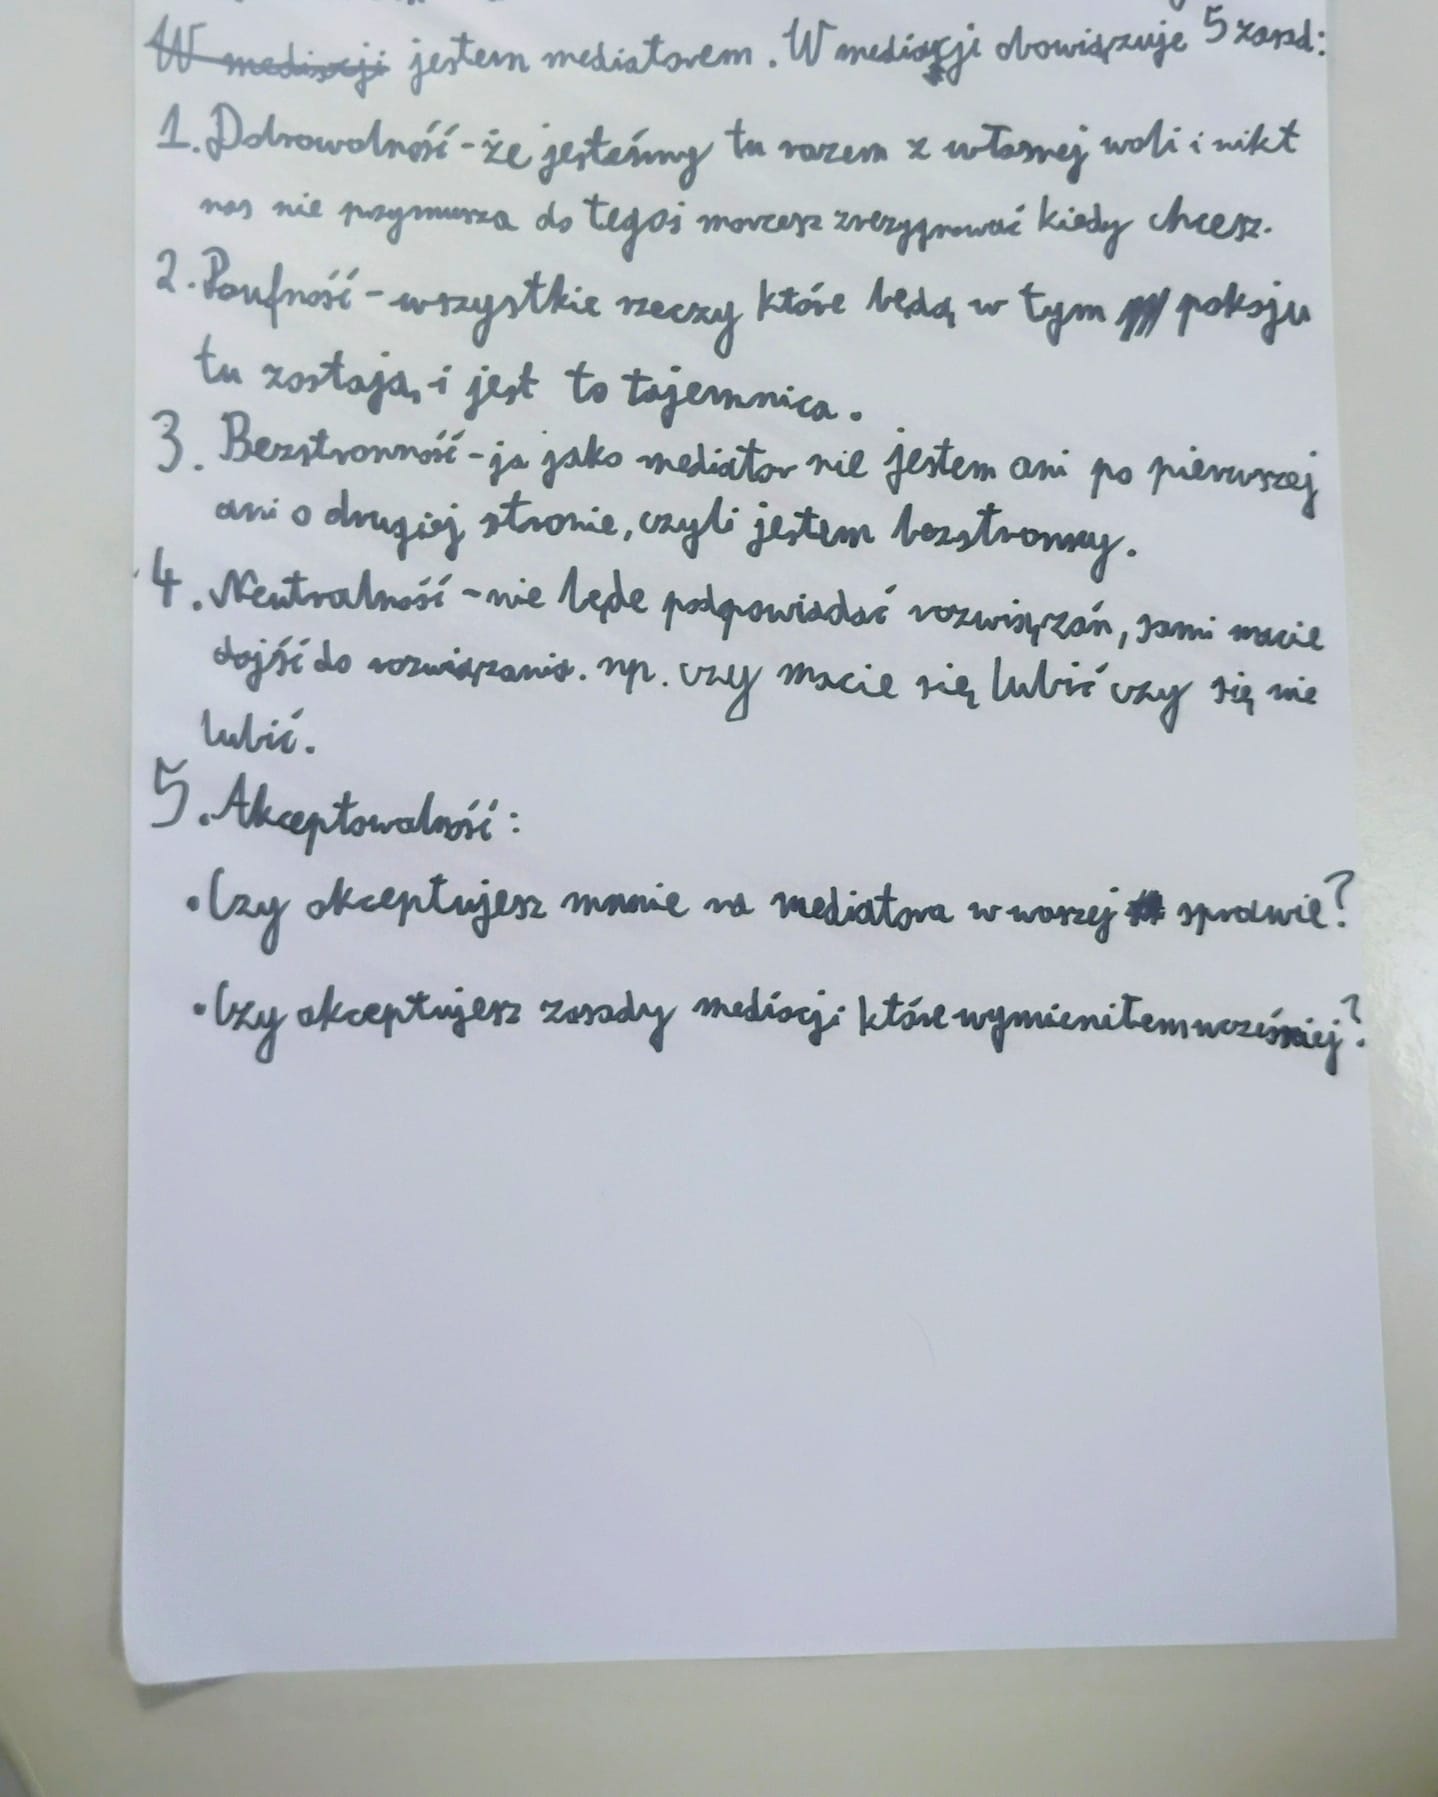 W mediacji jestem mediatorem. W mediacji obowiązuje 5 zasad:
1. Dobrowolność - że jesteśmy tu razem z własnej woli i nikt
nas nie przymusza do tego i morzesz zrezygnować kiedy chcesz.
2. Poufność - wszystkie rzeczy które będą w tym pokoju
tu zostają, i jest to tajemnica.
3. Bezstronność - ja jako mediator nie jestem ani po pierwszej
ani o drugiej stronie, czyli jestem bezstronny.
4. Neutralność - nie będe podpowiadać rozwiązań, sami macie
dojść do rozwiązania. np. czy macie się lubić czy się nie
lubić.
5. Akceptowalność:
• Czy akceptujesz mnie na mediatora w waszej sprawie?
• Czy akceptujesz zasady mediacji które wymieniłem wcześniej?